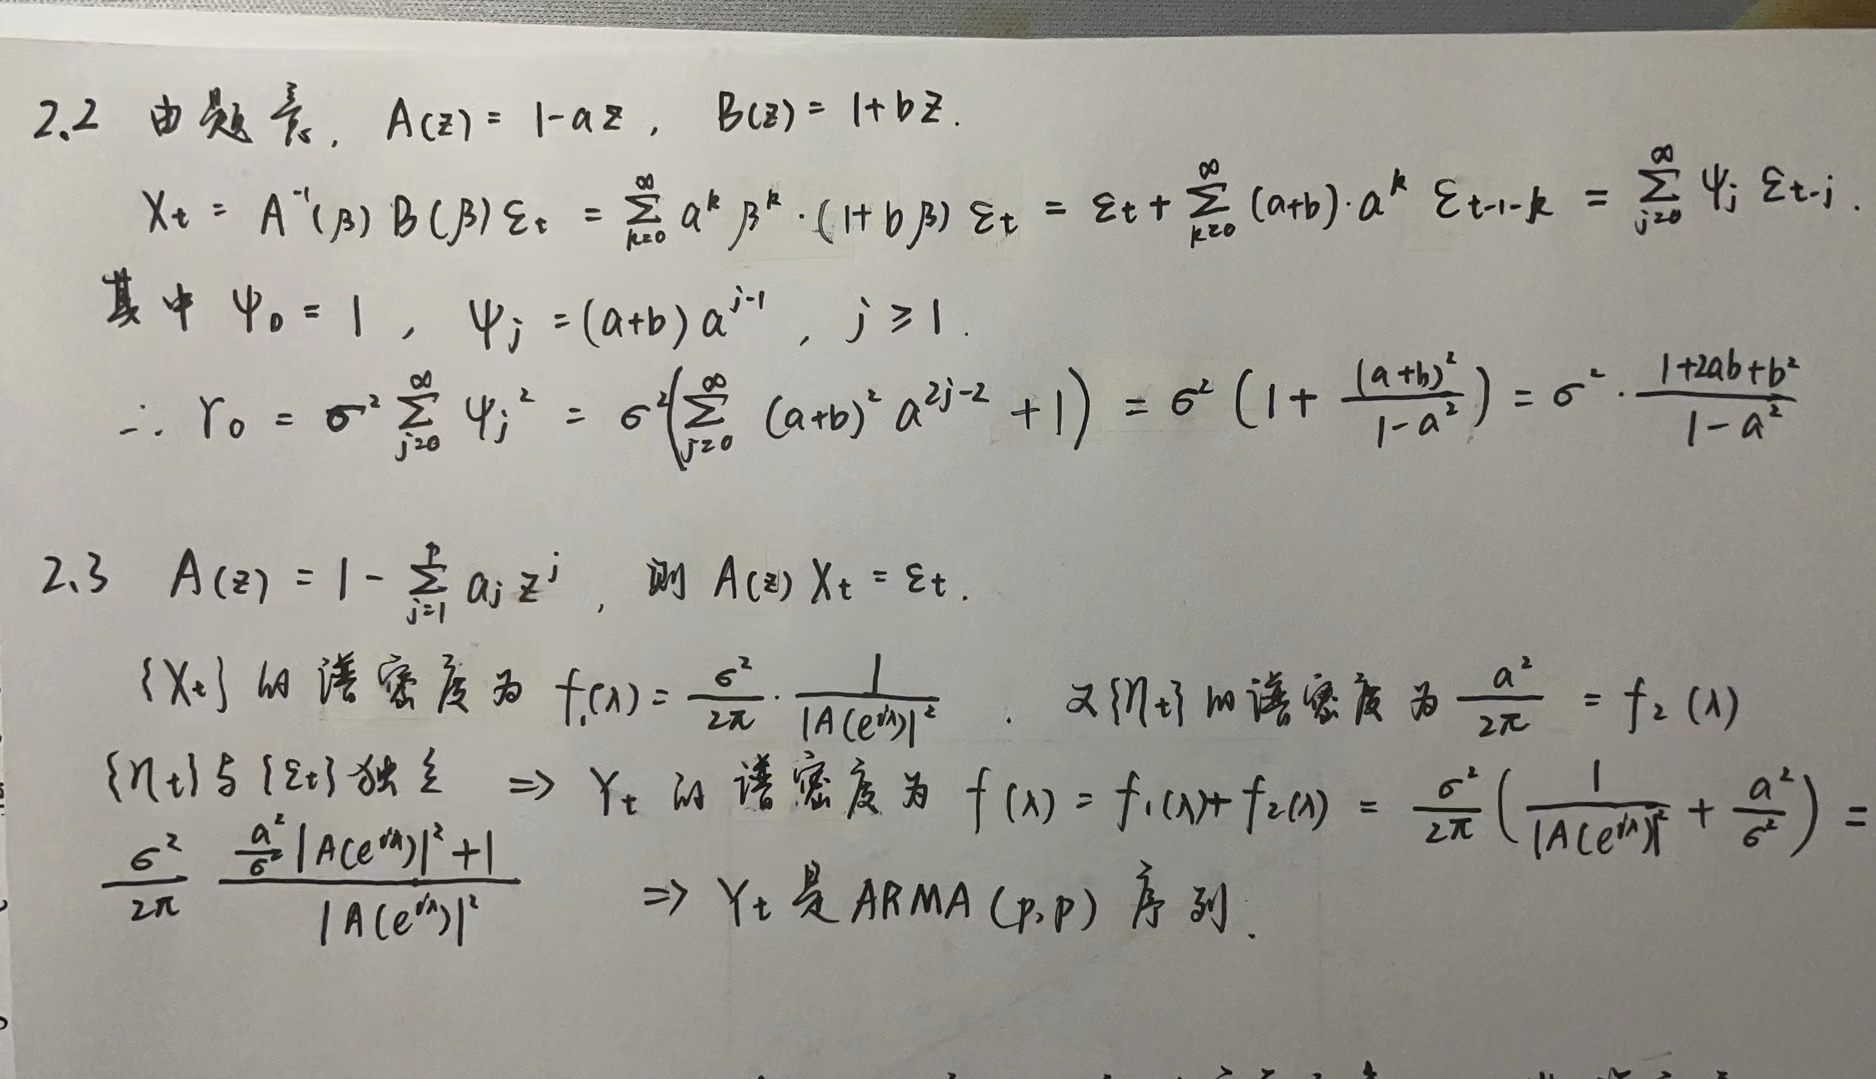 2.2 由题意, A(z) = 1-az, B(z) = 1+bz.
Xt = A⁻¹(β) B(β) εt = ∑_{k=0}^{∞} a^k β^k · (1+bβ) εt = εt + ∑_{k=0}^{∞} (a+b)·a^k ε_{t-1-k} = ∑_{j=0}^{∞} ψj ε_{t-j}.
其中 ψ0 = 1, ψj = (a+b) a^{j-1}, j ≥ 1.
∴ r0 = σ² ∑_{j=0}^{∞} ψj² = σ² (∑_{j=0}^{∞} (a+b)² a^{2j-2} + 1) = σ² (1 + (a+b)²/(1-a²)) = σ² · (1+2ab+b²)/(1-a²)
2.3 A(z) = 1 - ∑_{j=1}^{p} aj z^j, 则 A(z) Xt = εt.
{Xt} 的谱密度为 f1(λ) = σ²/2π · 1/|A(e^{iλ})|². 又{ηt}的谱密度为 a²/2π = f2(λ)
{ηt}与{εt}独立 ⇒ Yt 的谱密度为 f(λ) = f1(λ)+f2(λ) = σ²/2π (1/|A(e^{iλ})|² + a²/σ²) =
σ²/2π (a²/σ² |A(e^{iλ})|² + 1)/|A(e^{iλ})|² ⇒ Yt 是 ARMA(p,p) 序列.